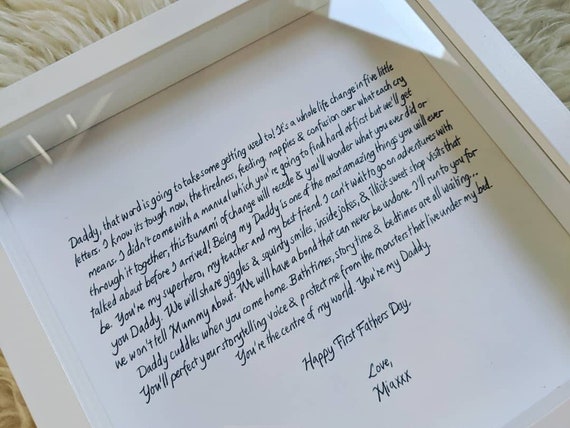 Daddy, that word is going to take some getting used to! It's a whole life change in five little
letters. I know its tough now, the tiredness, feeding, nappies & confusion over what each cry
means. I didn't come with a manual which you're going to find hard at first but we'll get
through it together, this tsunami of change will recede & you'll wonder what you ever did or
talked about before I arrived! Being my Daddy is one of the most amazing things you will ever
be. You're my superhero, my teacher and my best friend. I can't wait to go on adventures with
you Daddy. We will share giggles & squinty smiles, inside jokes, & illicit sweet shop visits that
we won't tell Mummy about. We will have a bond that can never be undone. I'll run to you for
Daddy cuddles when you come home. Bathtimes, story time & bedtimes are all waiting...
You'll perfect your storytelling voice & protect me from the monster that live under my bed.
You're the centre of my world. You're my Daddy.
Happy First Fathers Day,
Love,
Miaxxx